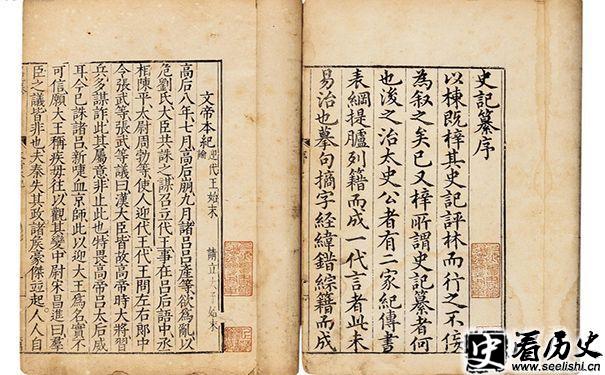 史記纂序
以棟既梓其史記評林而行之不佞
為叙之矣已又梓所謂史記纂者何
也後之治太史公者有二家紀傳書
表綱提臚列籍而成一代言者此未
易治也摹句摘字經緯錯綜籍而成
文帝本紀 迎代王始末 請立太子始末
高后八年七月高后崩九月諸呂呂產等欲為亂以
危劉氏大臣共誅之謀召立代王事在呂后語中丞
相陳平太尉周勃等使人迎代王代王問左右郎中
令張武等張武等議曰漢大臣皆故高帝時大將習
兵多謀詐此其屬意非止此也特畏高帝呂太后威
耳今已誅諸呂新啑血京師此以迎大王為名實不
可信願大王稱疾毋往以觀其變中尉宋昌進曰羣
臣之議皆非也夫秦失其政諸侯豪傑並起人人自
史 看历史
www.seelishi.cn